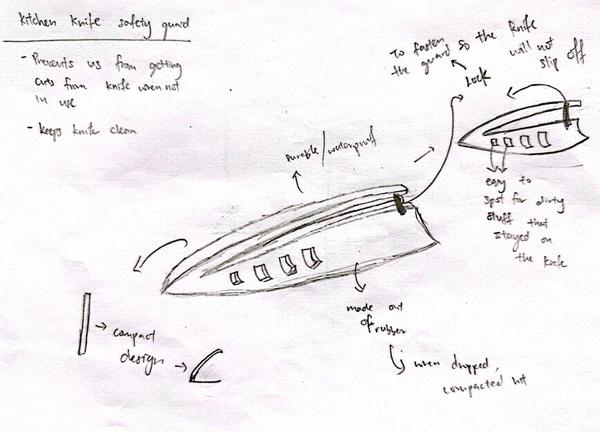 kitchen knife safety guard
- Prevents us from getting
cuts from knife when not
in use
- keeps knife clean
To fasten
the guard so the knife
will not
slip off
Lock
durable/waterproof
easy to
spot for dirty
stuff that
stayed on
the knife
made out
of rubber
when dropped,
compacted
compact
design